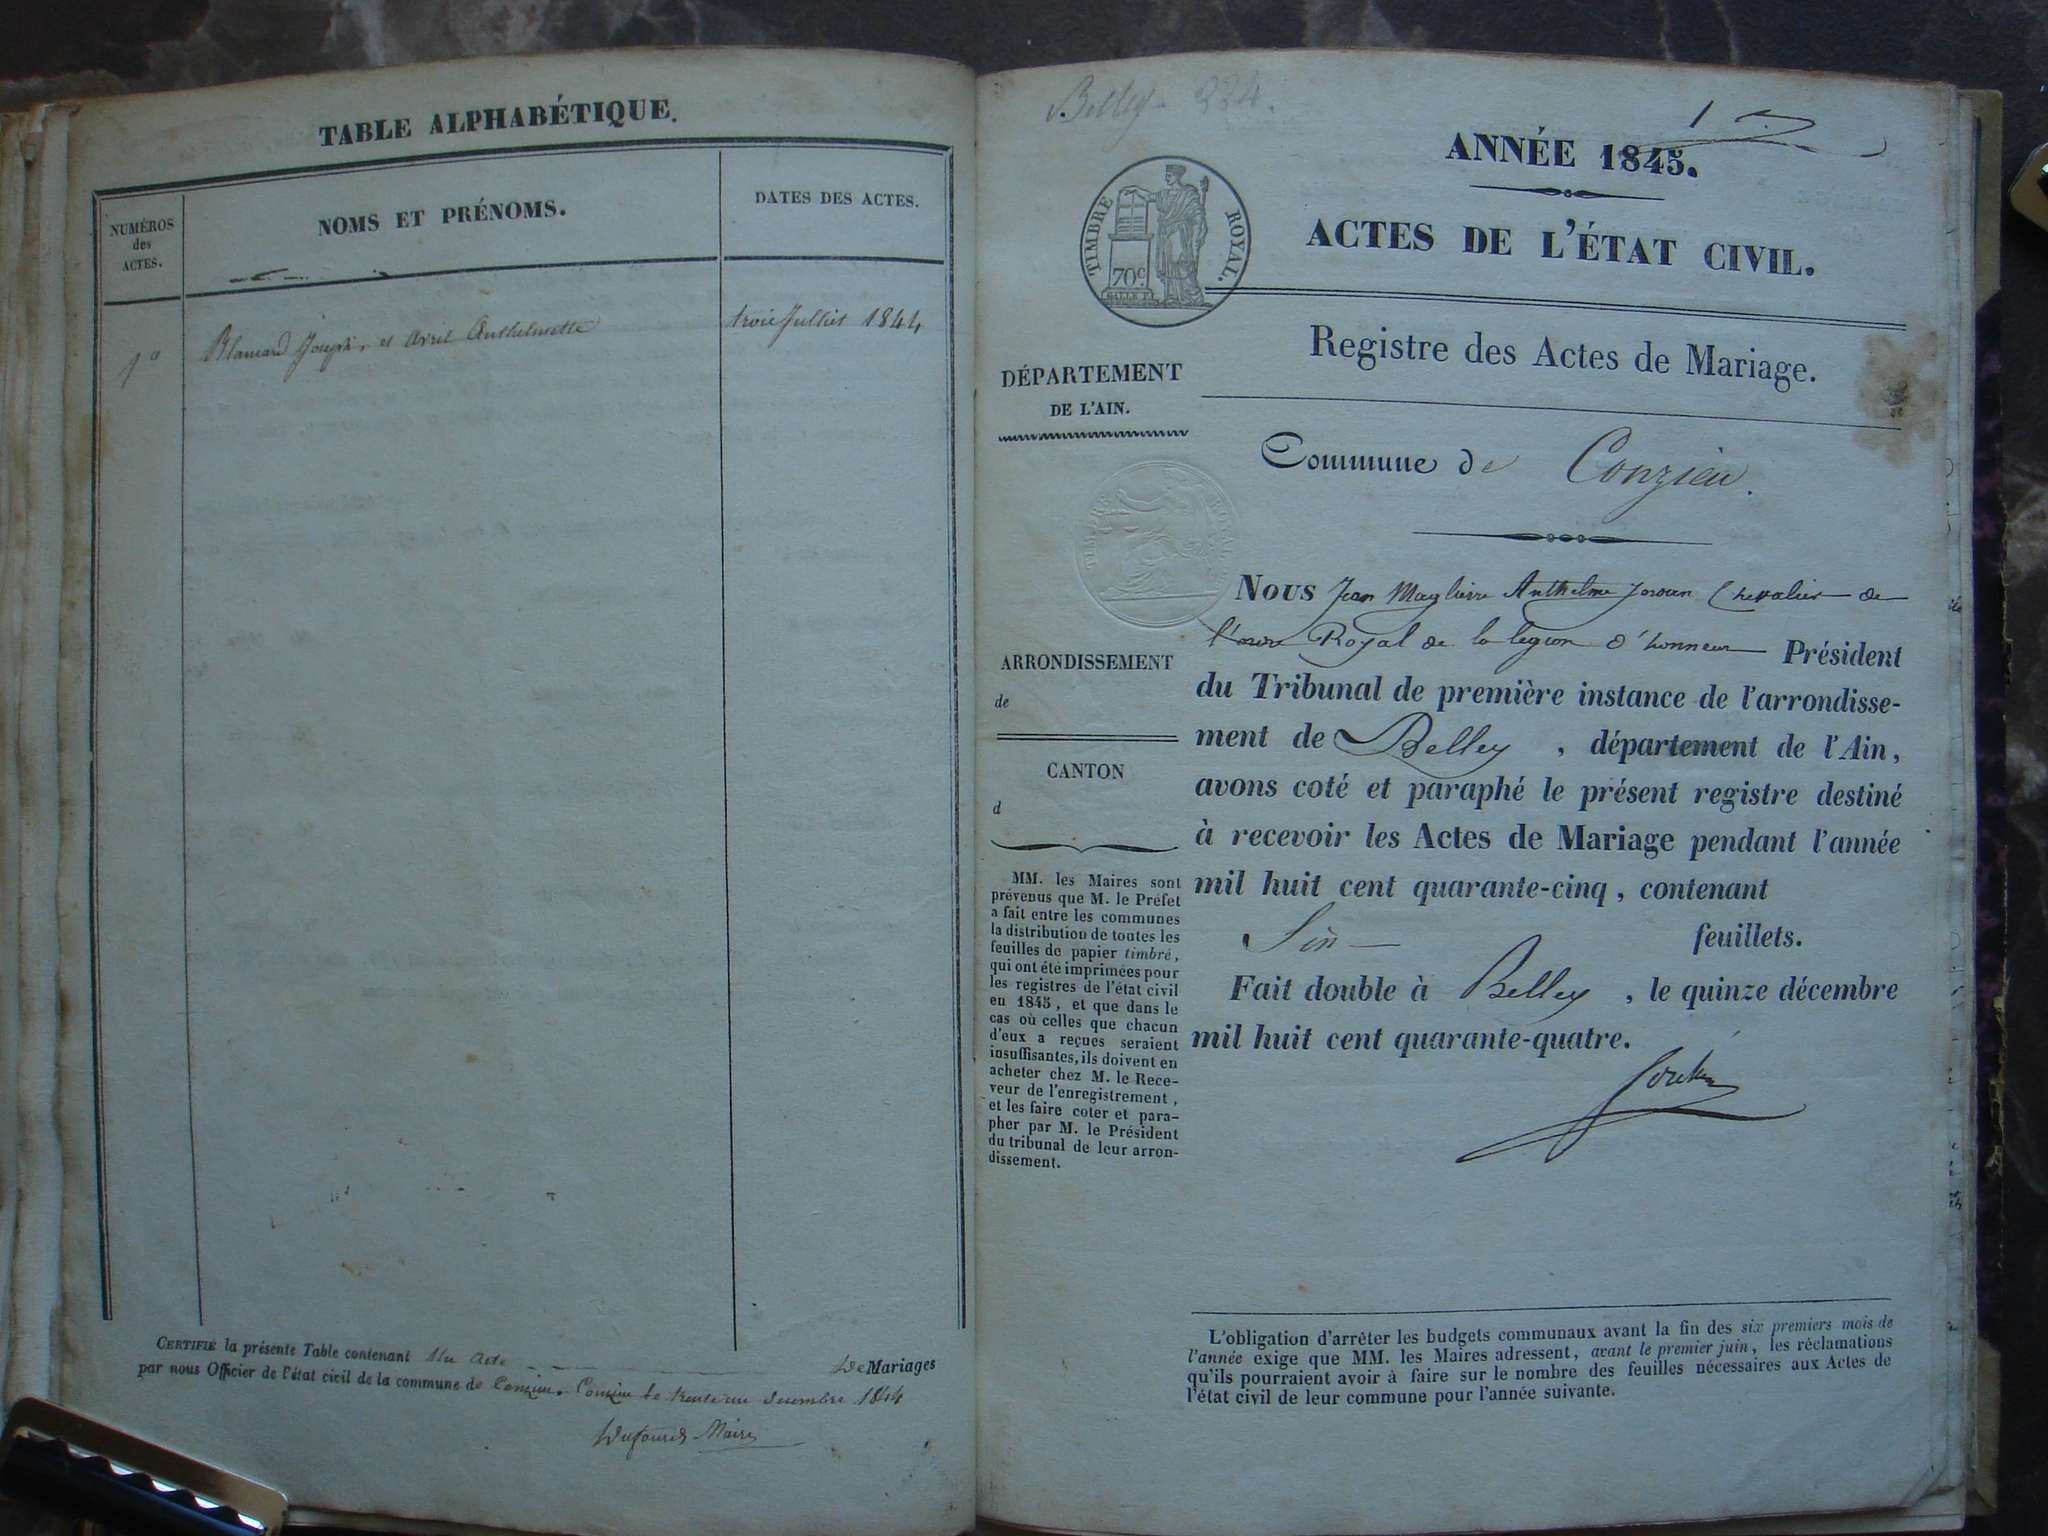 TABLE ALPHABÉTIQUE.
NUMÉROS
des
ACTES.
NOMS ET PRÉNOMS.
DATES DES ACTES.
Joseph, et Avril Anthelmette
trois Juillet 1844
CERTIFIÉ la présente Table contenant Un Acte De Mariages
par nous Officier de l'état civil de la commune de Conzieu. Conzieu le trente un decembre 1844
Dufour Maire
Belley 224.
1
ANNÉE 1845.
ACTES DE L'ÉTAT CIVIL.
TIMBRE ROYAL.
70c.
Registre des Actes de Mariage.
DÉPARTEMENT
DE L'AIN.
Commune de Conzieu.
ARRONDISSEMENT
de
CANTON
d
MM. les Maires sont
prévenus que M. le Préfet
a fait entre les communes
la distribution de toutes les
feuilles de papier timbré,
qui ont été imprimées pour
les registres de l'état civil
en 1845, et que dans le
cas où celles que chacun
d'eux a reçues seraient
insuffisantes, ils doivent en
acheter chez M. le Rece-
veur de l'enregistrement,
et les faire coter et para-
pher par M. le Président
du tribunal de leur arron-
dissement.
NOUS Jean Anthelme Chevalier de
Royal de la legion d'honneur Président
du Tribunal de première instance de l'arrondisse-
ment de Belley, département de l'Ain,
avons coté et paraphé le présent registre destiné
à recevoir les Actes de Mariage pendant l'année
mil huit cent quarante-cinq, contenant
Six feuillets.
Fait double à Belley, le quinze décembre
mil huit cent quarante-quatre.
L'obligation d'arrêter les budgets communaux avant la fin des six premiers mois de
l'année exige que MM. les Maires adressent, avant le premier juin, les réclamations
qu'ils pourraient avoir à faire sur le nombre des feuilles nécessaires aux Actes de
l'état civil de leur commune pour l'année suivante.